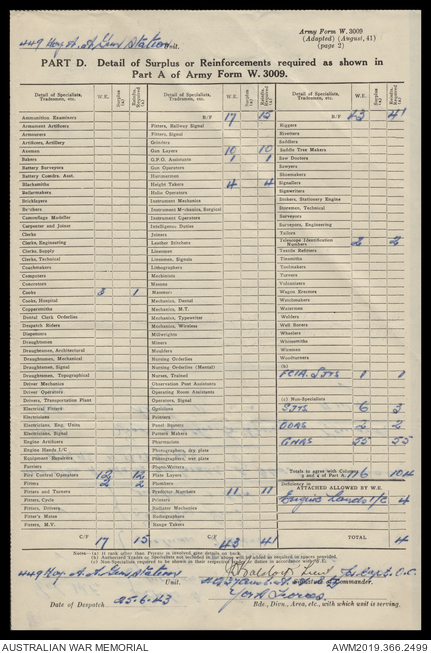 Army Form W. 3009
(Adapted) (August, 41)
(page 2)
449 Hvy A. A Gun Station Unit.
PART D. Detail of Surplus or Reinforcements required as shown in
Part A of Army Form W. 3009.
Detail of Specialists, Tradesmen, etc. W.E. Surplus (a) Reinfts. Required (a)
Ammunition Examiners
Armament Artificers
Armourers
Artificers, Artillery
Axemen
Bakers
Battery Surveyors
Battery Comdrs. Asst.
Blacksmiths
Boilermakers
Bricklayers
Butchers
Camouflage Modeller
Carpenter and Joiner
Clerks
Clerks, Engineering
Clerks, Supply
Clerks, Technical
Coachmakers
Computers
Concretors
Cooks 3 1
Cooks, Hospital
Coppersmiths
Dental Clerk Orderlies
Despatch Riders
Dispensers
Draughtsmen
Draughtsmen, Architectural
Draughtsmen, Mechanical
Draughtsmen, Signal
Draughtsmen, Topographical
Driver Mechanics
Driver Operators
Drivers, Transportation Plant
Electrical Fitters
Electricians
Electricians, Eng. Units
Electricians, Signal
Engine Artificers
Engine Hands I/C
Equipment Repairers
Farriers
Fire Control Operators 12 12
Fitters 2 2
Fitters and Turners
Fitters, Cycle
Fitters, Drivers
Fitter's Mates
Fitters, M.T.
C/F 17 15
Detail of Specialists, Tradesmen, etc. W.E. Surplus (a) Reinfts. Required (a)
B/F 17 15
Fitters, Railway Signal
Fitters, Signal
Grinders
Gun Layers 10 10
G.P.O. Assistants 1 1
Gun Operators
Hammermen
Height Takers 4 4
Helio Operators
Instrument Mechanics
Instrument Mechanics, Surgical
Instrument Operators
Intelligence Duties
Joiners
Leather Stitchers
Linesmen
Linesmen, Signals
Lithographers
Machinists
Masons
Masseurs
Mechanics, Dental
Mechanics, M.T.
Mechanics, Typewriter
Mechanics, Wireless
Millwrights
Miners
Moulders
Nursing Orderlies
Nursing Orderlies (Mental)
Nurses, Trained
Observation Post Assistants
Operating Room Assistants
Operators, Signal
Opticians
Painters
Panel Beaters
Pattern Makers
Pharmacists
Photographers, dry plate
Photographers, wet plate
Photo-Writers
Plate Layers
Plumbers
Predictor Numbers 11 11
Printers
Radiator Mechanics
Radiographers
Range Takers
C/F 43 41
Detail of Specialists, Tradesmen, etc. W.E. Surplus (a) Reinfts. Required (a)
B/F 43 41
Riggers
Rivetters
Saddlers
Saddle Tree Makers
Saw Doctors
Sawyers
Shoemakers
Signallers
Signwriters
Stokers, Stationary Engine
Storemen, Technical
Surveyors
Surveyors, Engineering
Tailors
Telescope Identification Numbers 2 2
Textile Refitters
Tinsmiths
Toolmakers
Turners
Vulcanizers
Wagon Erectors
Watchmakers
Watermen
Welders
Well Borers
Wheelers
Whitesmiths
Wiremen
Woodturners
(b)
(c) Non-Specialists
SJTS 6 3
OORS 2 2
GNRS 55 55
Totals to agree with Columns
and 4 of Part A. 116 104
Deficiency in
ATTACHED ALLOWED BY W.E.
Engine Hands I/C 4
TOTAL 4
Notes:—(a) If rank other than Private is involved give details on back.
(b) Authorised Trades or Specialists not included in list above will be added as required in spaces provided.
(c) Non-Specialists required to be shown in their respective duties in accordance with W.E.
449 Hvy. A. A Gun Station Unit.
Lieut for Capt. O.C.
Signature of Commander.
York Forces
Bde., Divn., Area, etc., with which unit is serving.
Date of Despatch 25.6.43
AUSTRALIAN WAR MEMORIAL
AWM2019.366.2499